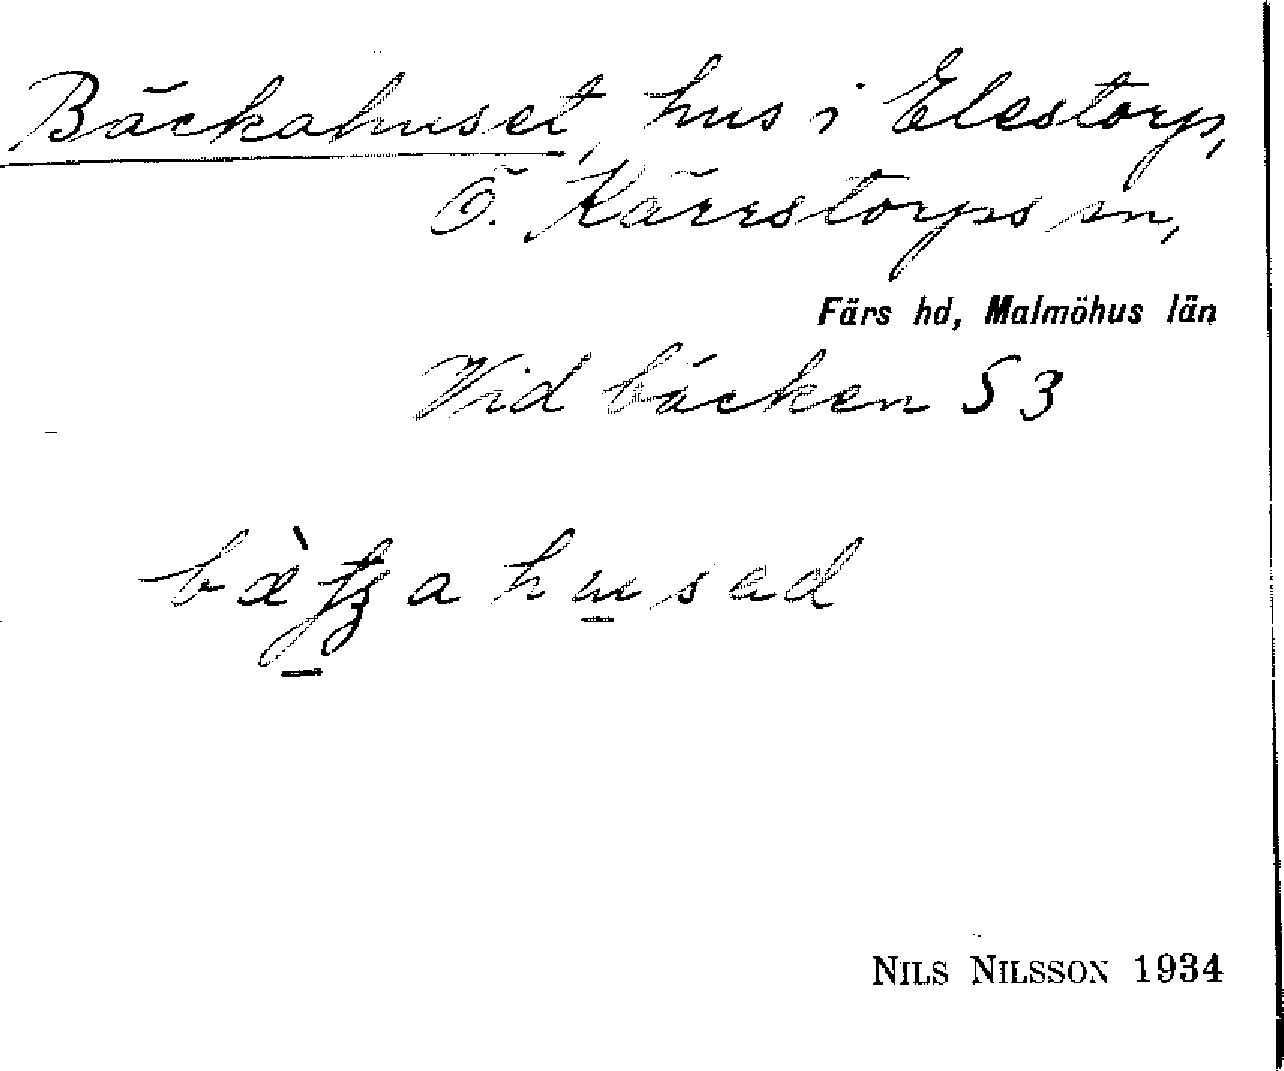 Bäckahuset, hus i Elestorp,
Ö. Kärrstorps sn,
Färs hd, Malmöhus län
Vid bäcken S 3
NILS NILSSON 1934